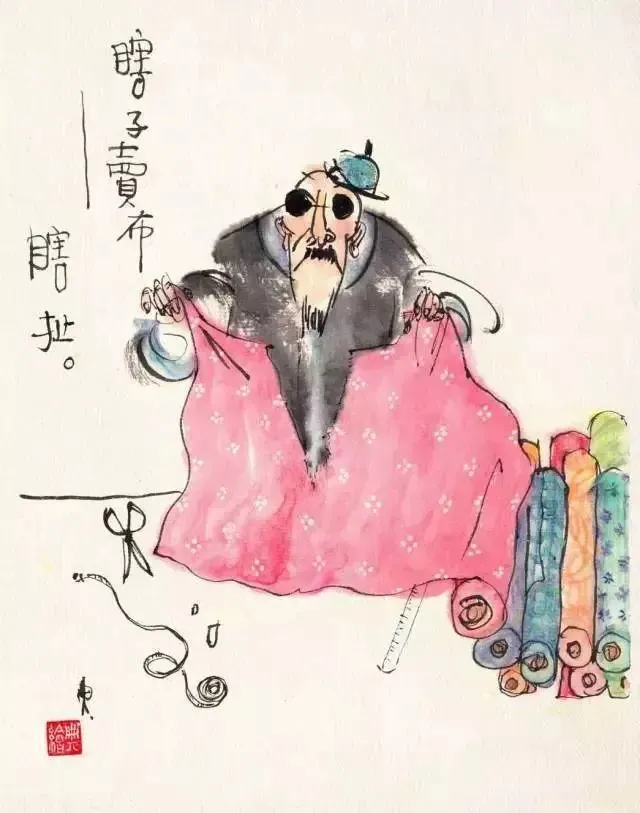 瞎子賣布
——瞎扯。